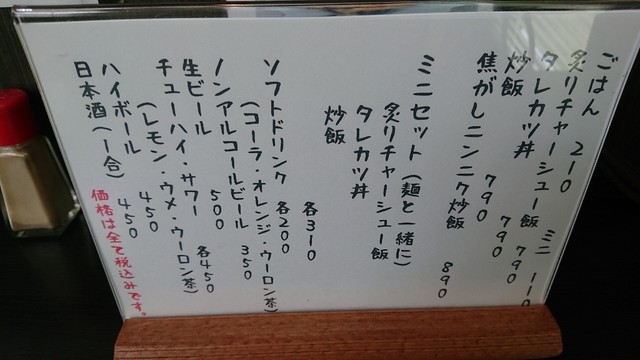 ごはん 210 ミニ 110
炙りチャーシュー飯 790
タレカツ丼 790
炒飯 790
焦がしニンニク炒飯 890
ミニセット(麺と一緒に)
炙りチャーシュー飯
タレカツ丼
炒飯 各310
ソフトドリンク 各200
(コーラ・オレンジ・ウーロン茶)
ノンアルコールビール 350
生ビール 500
チューハイ・サワー 各450
(レモン・ウメ・ウーロン茶)
ハイボール 450
日本酒(1合) 450
価格は全て税込みです。